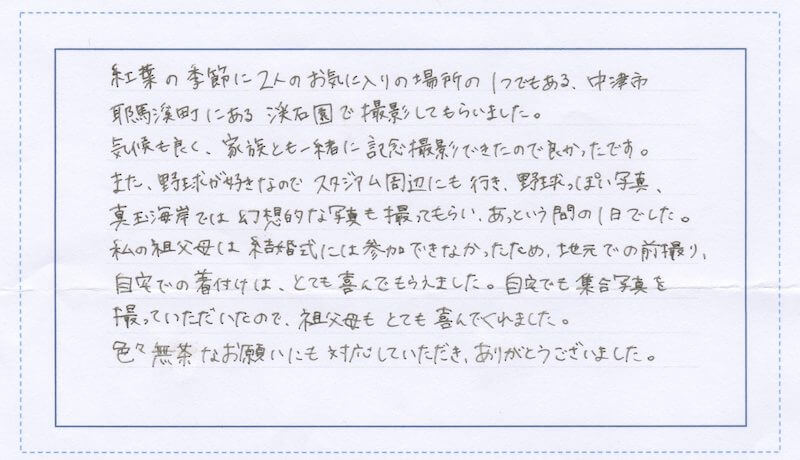 紅葉の季節に2人のお気に入りの場所の1つでもある、中津市
耶馬溪町にある 渓石園で撮影してもらいました。
気候も良く、家族とも一緒に記念撮影できたので良かったです。
また、野球が好きなので スタジアム周辺にも行き、野球っぽい写真、
真玉海岸では幻想的な写真も撮ってもらい、あっという間の1日でした。
私の祖父母は結婚式には参加できなかったため、地元での前撮り、
自宅での着付けは、とても喜んでもらえました。自宅でも集合写真を
撮っていただいたので、祖父母もとても喜んでくれました。
色々無茶なお願いにも対応していただき、ありがとうございました。